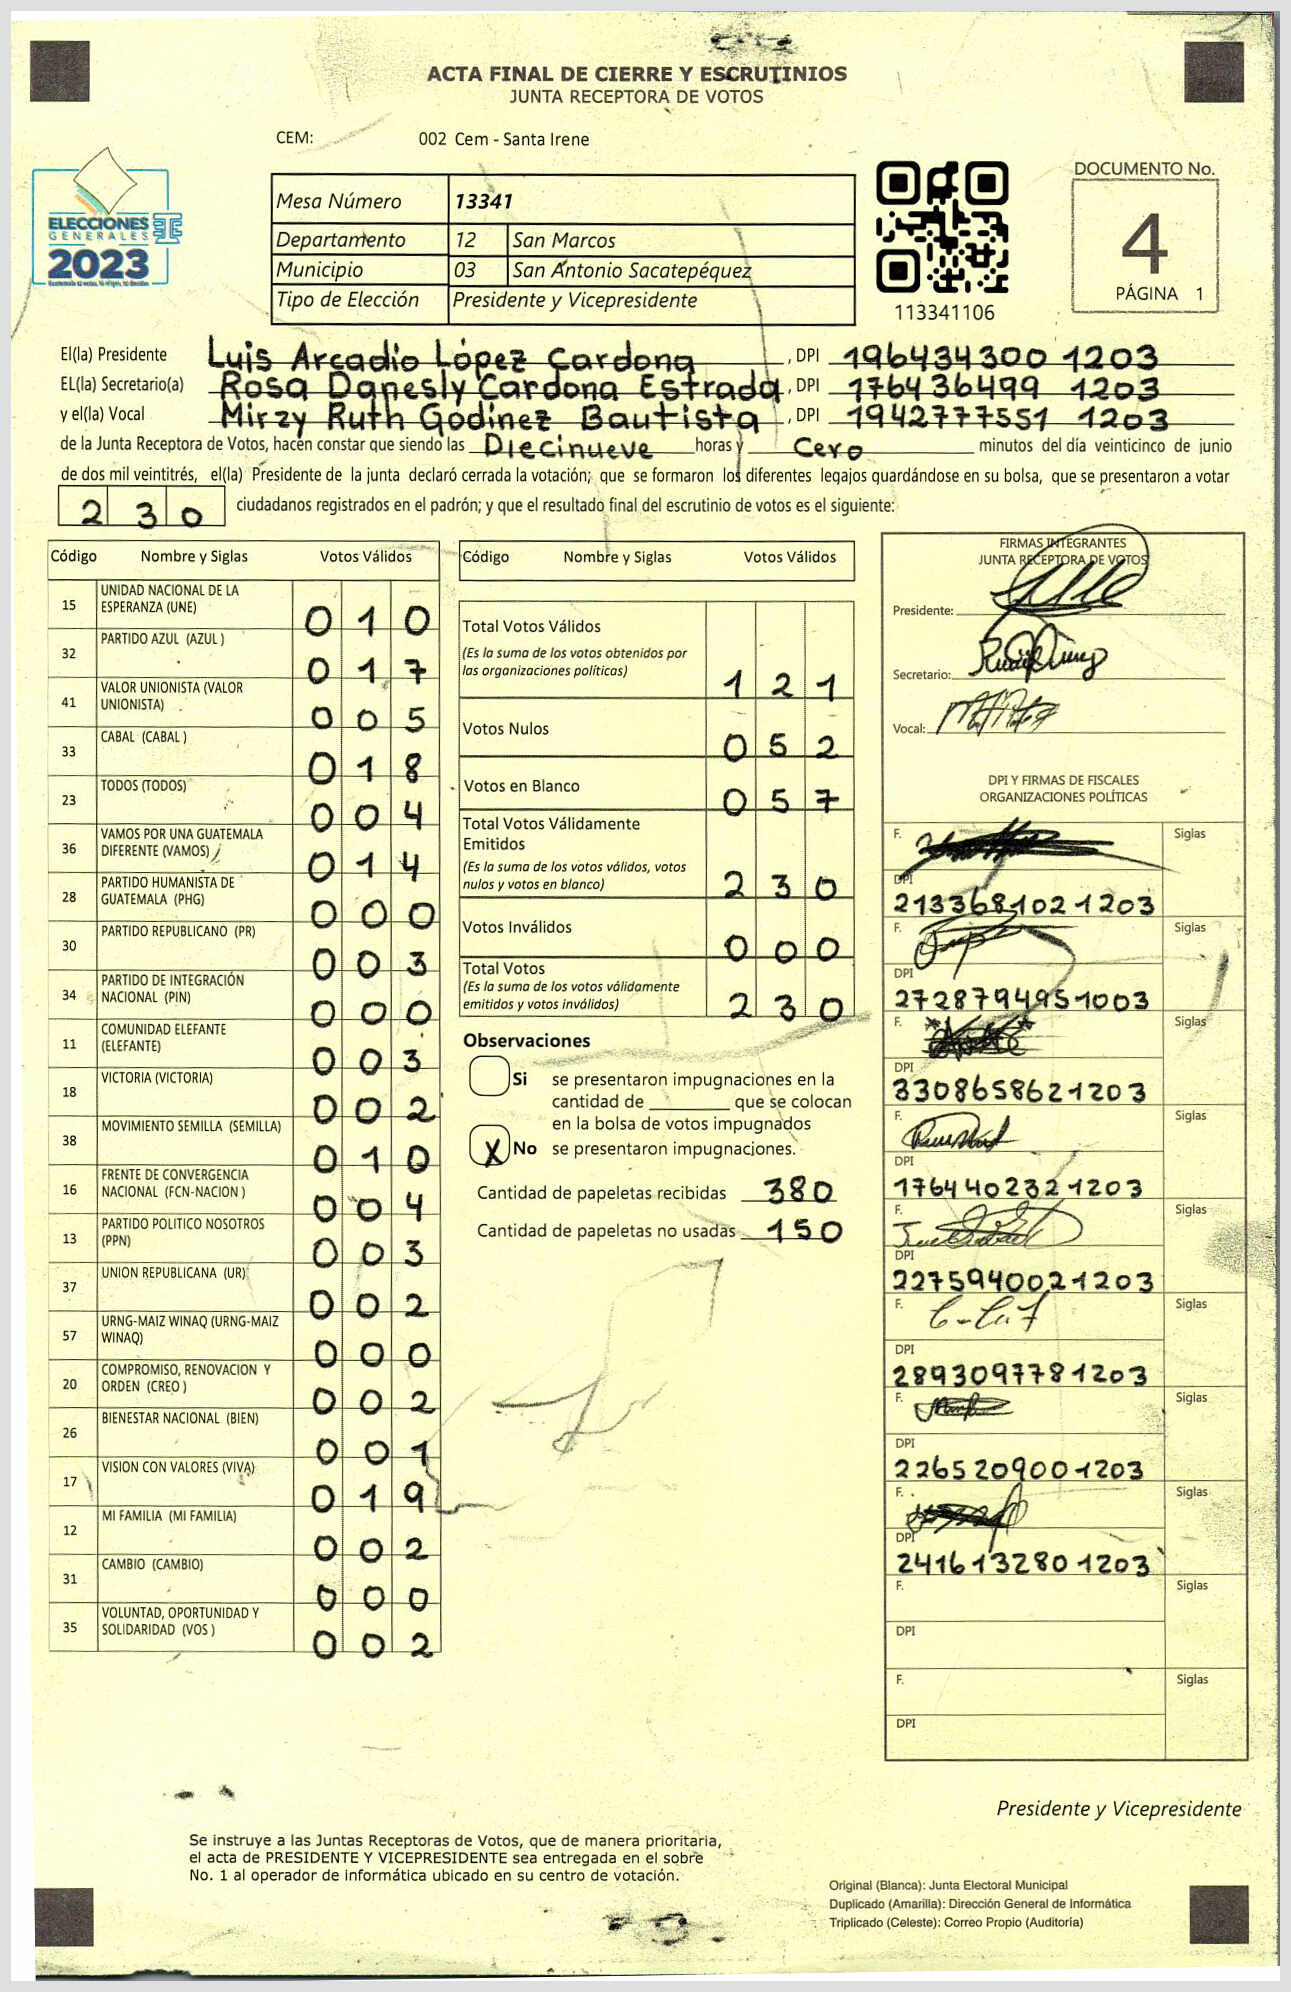 ACTA FINAL DE CIERRE Y ESCRUTINIOS
JUNTA RECEPTORA DE VOTOS
CEM: 002 Cem - Santa Irene
ELECCIONES
GENERALES
2023
Mesa Número 13341
Departamento 12 San Marcos
Municipio 03 San Antonio Sacatepéquez
Tipo de Elección Presidente y Vicepresidente
113341106
DOCUMENTO No.
4
PÁGINA 1
El(la) Presidente Luis Arcadio López Cardona, DPI 196434300 1203
EL(la) Secretario(a) Rosa Danesly Cardona Estrada, DPI 176436499 1203
y el(la) Vocal Mirzy Ruth Godínez Bautista, DPI 1942777551 1203
de la Junta Receptora de Votos, hacen constar que siendo las Diecinueve horas y Cero minutos del día veinticinco de junio
de dos mil veintitrés, el(la) Presidente de la junta declaró cerrada la votación; que se formaron los diferentes legajos guardándose en su bolsa, que se presentaron a votar
230 ciudadanos registrados en el padrón; y que el resultado final del escrutinio de votos es el siguiente:
Código Nombre y Siglas Votos Válidos
15 UNIDAD NACIONAL DE LA
ESPERANZA (UNE) 010
32 PARTIDO AZUL (AZUL ) 017
41 VALOR UNIONISTA (VALOR
UNIONISTA) 005
33 CABAL (CABAL ) 018
23 TODOS (TODOS) 004
36 VAMOS POR UNA GUATEMALA
DIFERENTE (VAMOS) 014
28 PARTIDO HUMANISTA DE
GUATEMALA (PHG) 000
30 PARTIDO REPUBLICANO (PR) 003
34 PARTIDO DE INTEGRACIÓN
NACIONAL (PIN) 000
11 COMUNIDAD ELEFANTE
(ELEFANTE) 003
18 VICTORIA (VICTORIA) 002
38 MOVIMIENTO SEMILLA (SEMILLA) 010
16 FRENTE DE CONVERGENCIA
NACIONAL (FCN-NACION ) 004
13 PARTIDO POLITICO NOSOTROS
(PPN) 003
37 UNION REPUBLICANA (UR) 002
57 URNG-MAIZ WINAQ (URNG-MAIZ
WINAQ) 000
20 COMPROMISO, RENOVACION Y
ORDEN (CREO ) 002
26 BIENESTAR NACIONAL (BIEN) 001
17 VISION CON VALORES (VIVA) 019
12 MI FAMILIA (MI FAMILIA) 002
31 CAMBIO (CAMBIO) 000
35 VOLUNTAD, OPORTUNIDAD Y
SOLIDARIDAD (VOS ) 002
Código Nombre y Siglas Votos Válidos
Total Votos Válidos
(Es la suma de los votos obtenidos por
las organizaciones políticas) 121
Votos Nulos 052
Votos en Blanco 057
Total Votos Válidamente
Emitidos
(Es la suma de los votos válidos, votos
nulos y votos en blanco) 230
Votos Inválidos 000
Total Votos
(Es la suma de los votos válidamente
emitidos y votos inválidos) 230
Observaciones
Si se presentaron impugnaciones en la
cantidad de ________ que se colocan
en la bolsa de votos impugnados
X No se presentaron impugnaciones.
Cantidad de papeletas recibidas 380
Cantidad de papeletas no usadas 150
FIRMAS INTEGRANTES
JUNTA RECEPTORA DE VOTOS
Presidente:
Secretario:
Vocal:
DPI Y FIRMAS DE FISCALES
ORGANIZACIONES POLÍTICAS
F. Siglas
DPI
2133681021203
F. Siglas
DPI
2728794951003
F. Siglas
DPI
3308658621203
F. Siglas
DPI
1764402321203
F. Siglas
DPI
2275940021203
F. Siglas
DPI
2893097781203
F. Siglas
DPI
2265209001203
F. Siglas
DPI
2416132801203
F. Siglas
DPI
F. Siglas
DPI
Presidente y Vicepresidente
Se instruye a las Juntas Receptoras de Votos, que de manera prioritaria,
el acta de PRESIDENTE Y VICEPRESIDENTE sea entregada en el sobre
No. 1 al operador de informática ubicado en su centro de votación.
Original (Blanca): Junta Electoral Municipal
Duplicado (Amarilla): Dirección General de Informática
Triplicado (Celeste): Correo Propio (Auditoría)